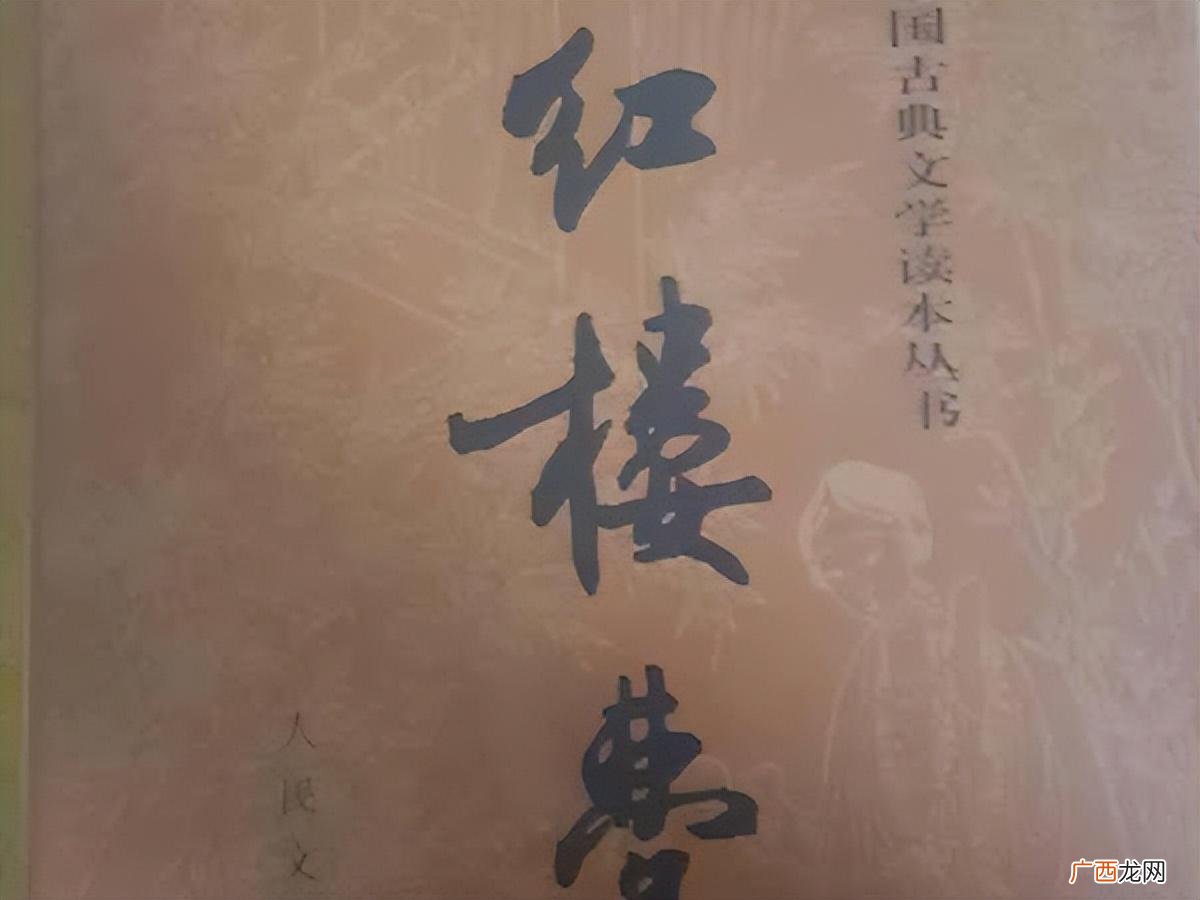 国古典文学读本丛书
红楼梦
人民文
广西龙网